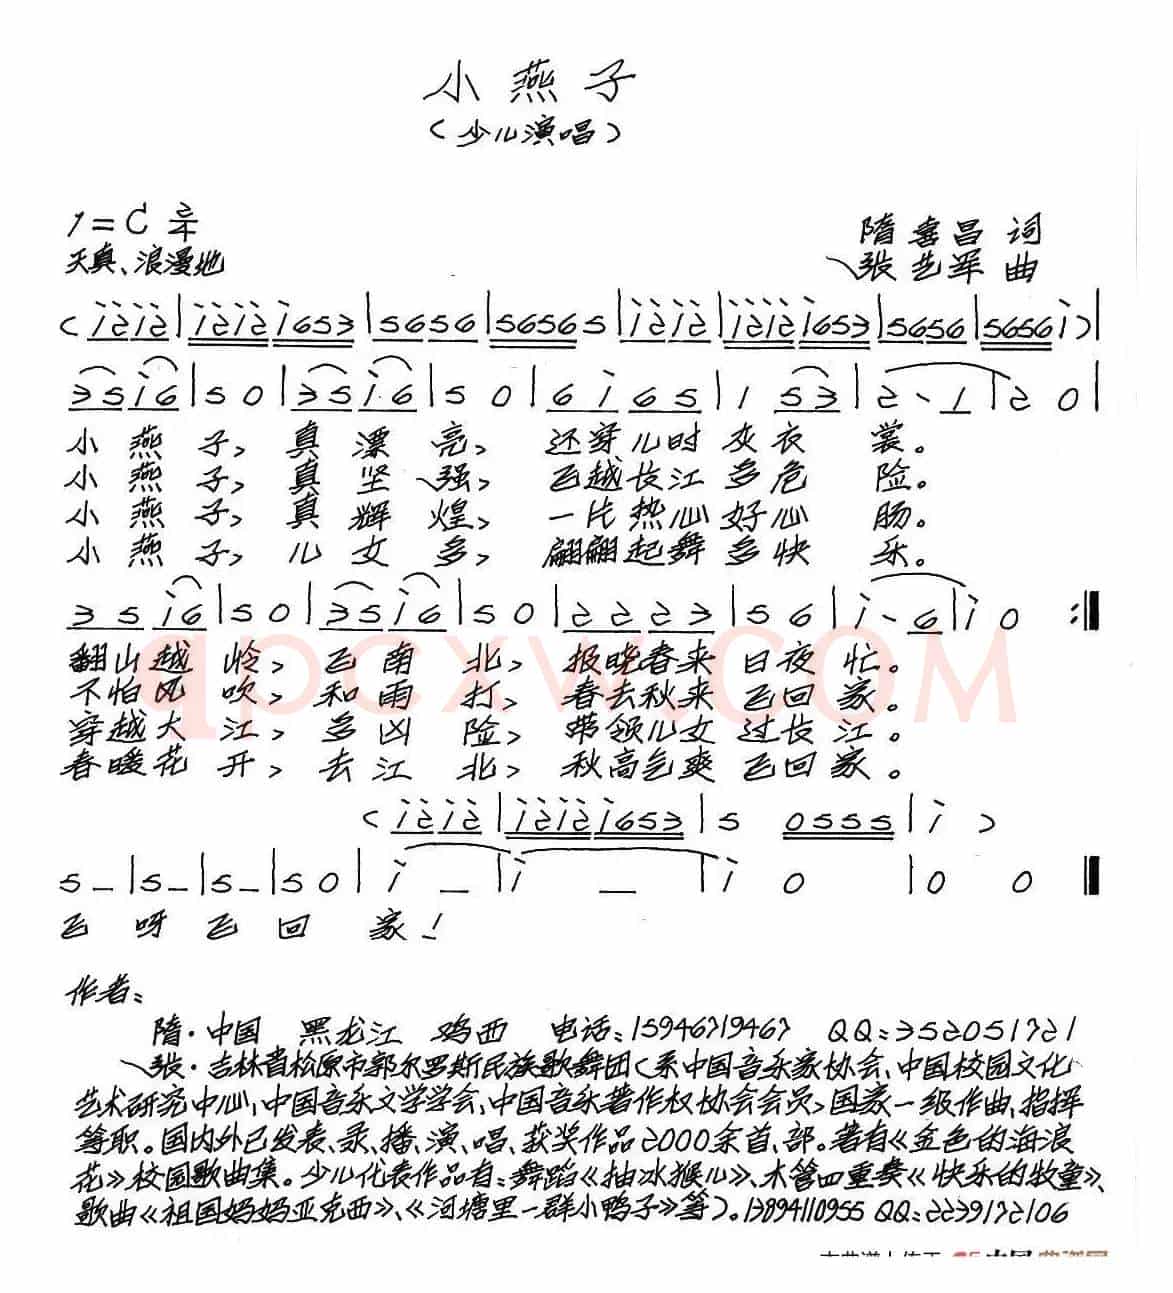 小燕子
（少儿演唱）
1=C 2/4
天真、浪漫地
隋喜昌 词
张艺军 曲
( i̇2̇i̇2̇ | i̇2̇i̇2̇ i̇653 | 5656 | 56565 | i̇2̇i̇2̇ | i̇2̇i̇2̇ i̇653 | 5656 | 5656i̇ ) |
35i̇6 | 5 0 | 35i̇6 | 5 0 | 6 i̇ 6 5 | 1 53 | 2· 1 | 2 0 |
小燕子，真漂亮，还穿儿时灰衣裳。
小燕子，真坚强，飞越长江多危险。
小燕子，真辉煌，一片热心好心肠。
小燕子，儿女多，翩翩起舞多快乐。
3 5 i̇6 | 5 0 | 35i̇6 | 5 0 | 2 2 2 3 | 5 6 | i̇· 6 | i̇ 0 :‖
翻山越岭，飞南北，报晓春来日夜忙。
不怕风吹，和雨打，春去秋来飞回家。
穿越大江，多凶险，带领儿女过长江。
春暖花开，去江北，秋高气爽飞回家。
( i̇2̇i̇2̇ | i̇2̇i̇2̇ i̇653 | 5 0555 | i̇ )
5 – | 5 – | 5 – | 5 0 | i̇ – | i̇ – | i̇ 0 | 0 0 ‖
飞呀飞回家！
作者：
隋·中国 黑龙江 鸡西 电话：15946719467 QQ：352051721
张·吉林省松原市郭尔罗斯民族歌舞团（系中国音乐家协会、中国校园文化
艺术研究中心、中国音乐文学学会、中国音乐著作权协会会员，国家一级作曲、指挥
等职。国内外已发表、录、播、演、唱、获奖作品2000余首、部。著有《金色的海浪
花》校园歌曲集。少儿代表作品有：舞蹈《抽冰猴儿》、木管四重奏《快乐的牧童》、
歌曲《祖国妈妈亚克西》、《河塘里一群小鸭子》等）。13894110955 QQ：2239172106
qpcxw.COM